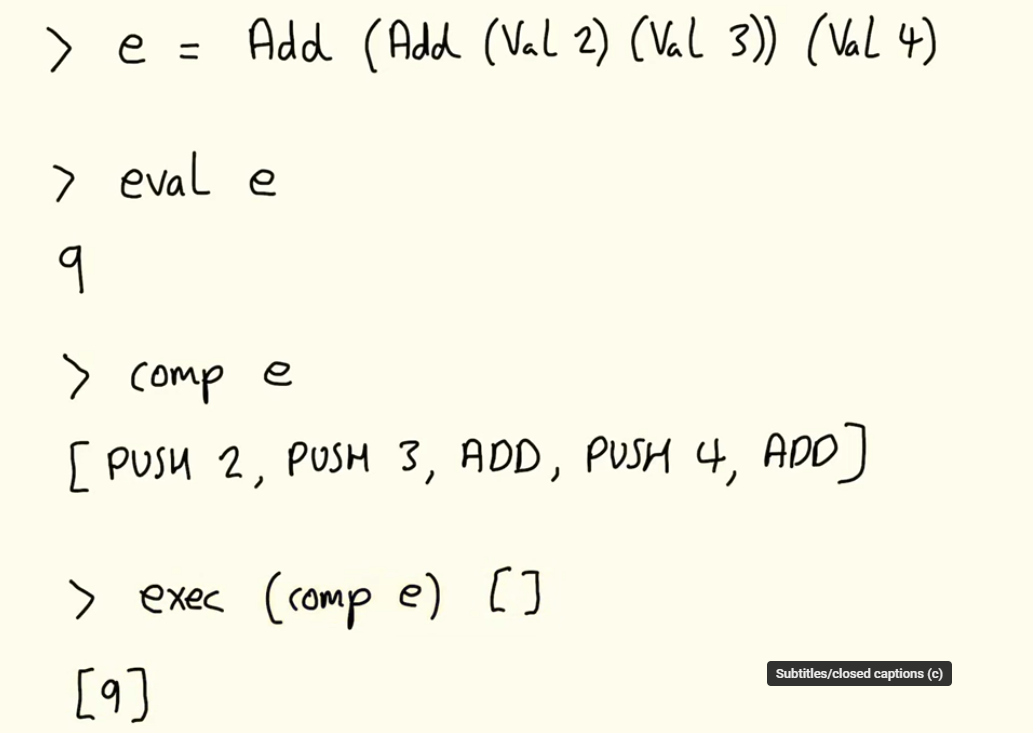 > e = Add (Add (Val 2) (Val 3)) (Val 4)
> eval e
9
> comp e
[PUSH 2, PUSH 3, ADD, PUSH 4, ADD]
> exec (comp e) []
[9]
Subtitles/closed captions (c)